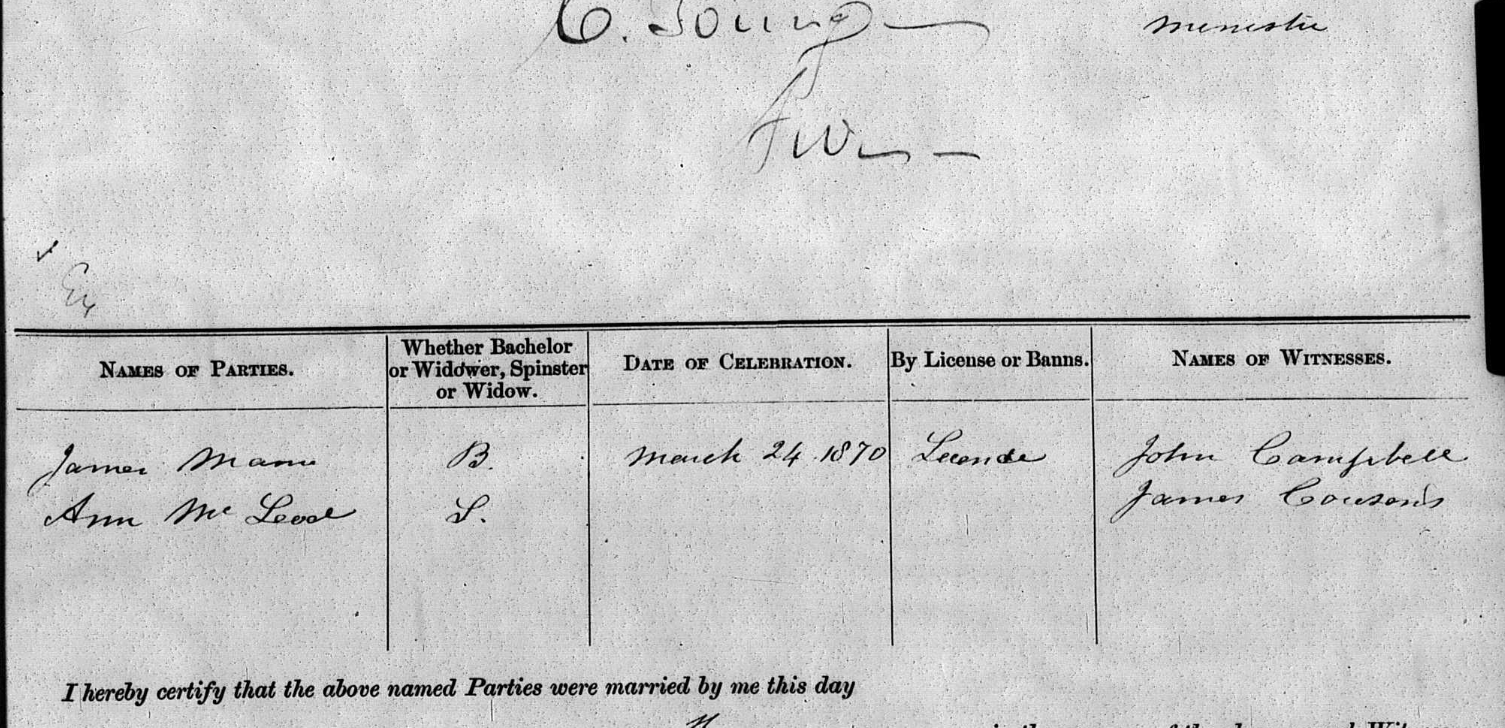 C. Young
Minister
Ex
NAMES OF PARTIES.
Whether Bachelor
or Widower, Spinster
or Widow.
DATE OF CELEBRATION.
By License or Banns.
NAMES OF WITNESSES.
James Mann
B.
March 24 1870
License
John Campbell
James Couson's
Ann Mc Leod
S.
I hereby certify that the above named Parties were married by me this day